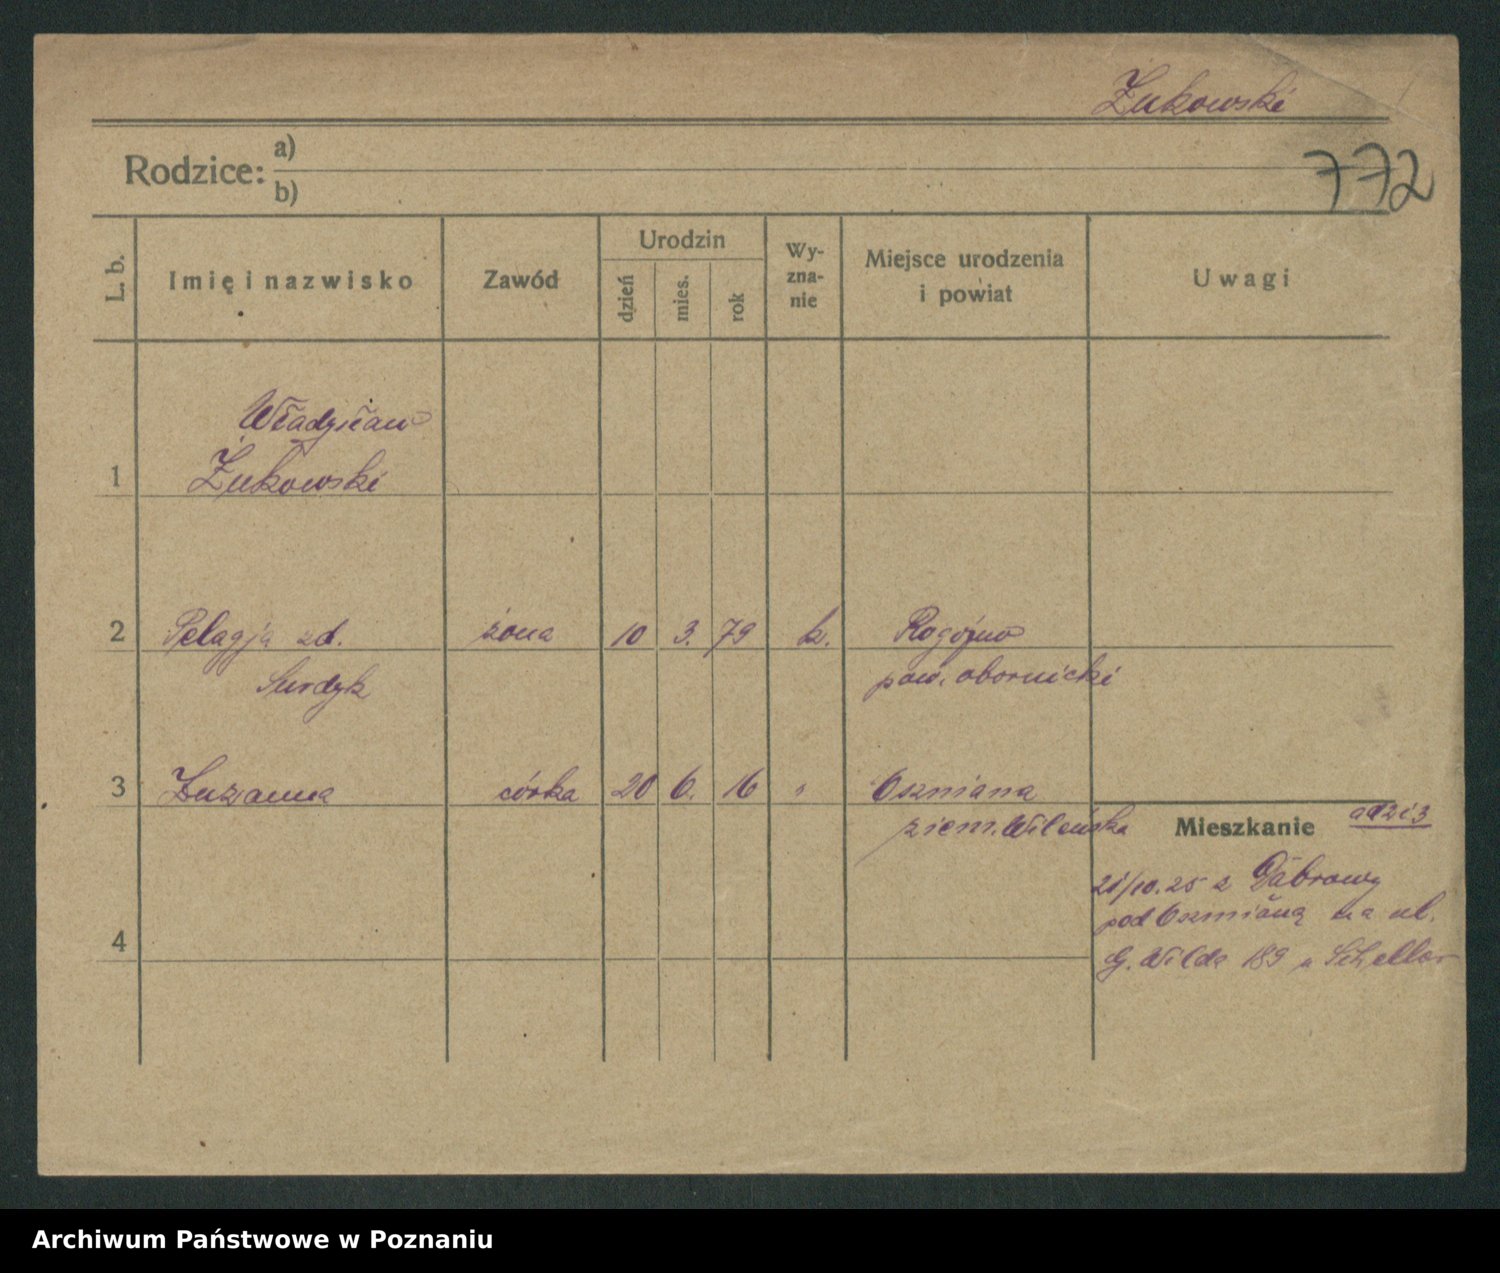 Żukowski
772
Rodzice: a)
b)
L. b.
Imię i nazwisko
Zawód
Urodzin
dzień
mies.
rok
Wy-
zna-
nie
Miejsce urodzenia
i powiat
Uwagi
Władysław
1 Żukowski
2 Pelagja zd. żona 10 3. 79 k. Rogoźno
Surdyk pow. obornicki
3 Zuzanna córka 20 6. 16 " Oszmiana
ziem. Wileńska
Mieszkanie ad 2 i 3
21/10.25 z Dąbrowy
pod Oszmianą na ul.
4
G. Wilda 189 u Scheller
Archiwum Państwowe w Poznaniu